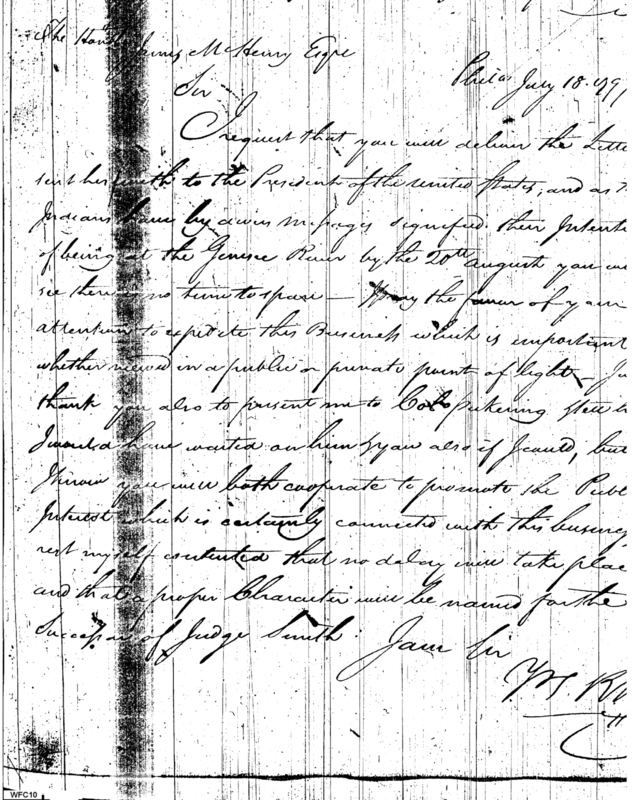 The Honble James McHenry Esqre
Philaa July 18. 179
Sir
I request that you will deliver the Lette
sent herewith to the President of the united States, and as t
Indians have by divers messages signified their Intenti
of being at the Genesee River by the 20th august you wi
see there is no time to spare — I pray the favour of your
attention to expedite this Business which is important
whether viewed in a public or private point of light —
thank you also to present me to Colo Pickering
I would have waited on him & you also if I could, but
I know you will both cooperate to promote the Publ
Interest which is certainly connected with this business
rest myself contented that no delay will take plac
and that a proper Character will be named for the
Successor of Judge Smith I am Sir
Yrs RM
WFC10